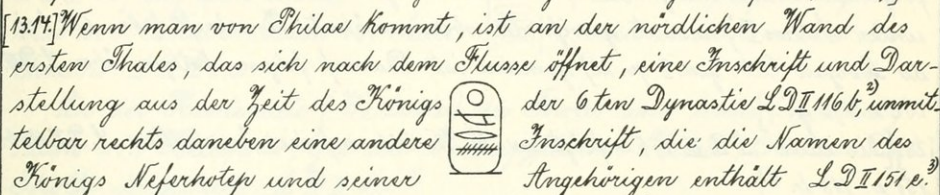 [13.14.] Wenn man von Philae kommt, ist an der nördlichen Wand des
ersten Thales, das sich nach dem Flusse öffnet, eine Inschrift und Dar-
stellung aus der Zeit des Königs der 6ten Dynastie LDII116b,²⁾ unmit-
telbar rechts daneben eine andere Inschrift, die die Namen des
Königs Neferhotep und seiner Angehörigen enthält LDII151e.³⁾